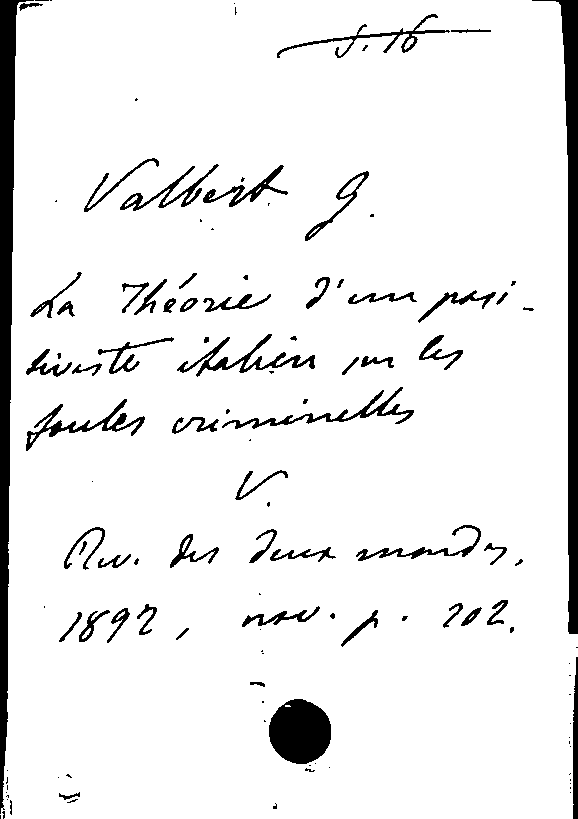 S. 16
Valbert G.
La Théorie d'un posi-
tiviste italien sur les
foules criminelles
V.
Rev. des deux mondes,
1892, nov. p. 202.